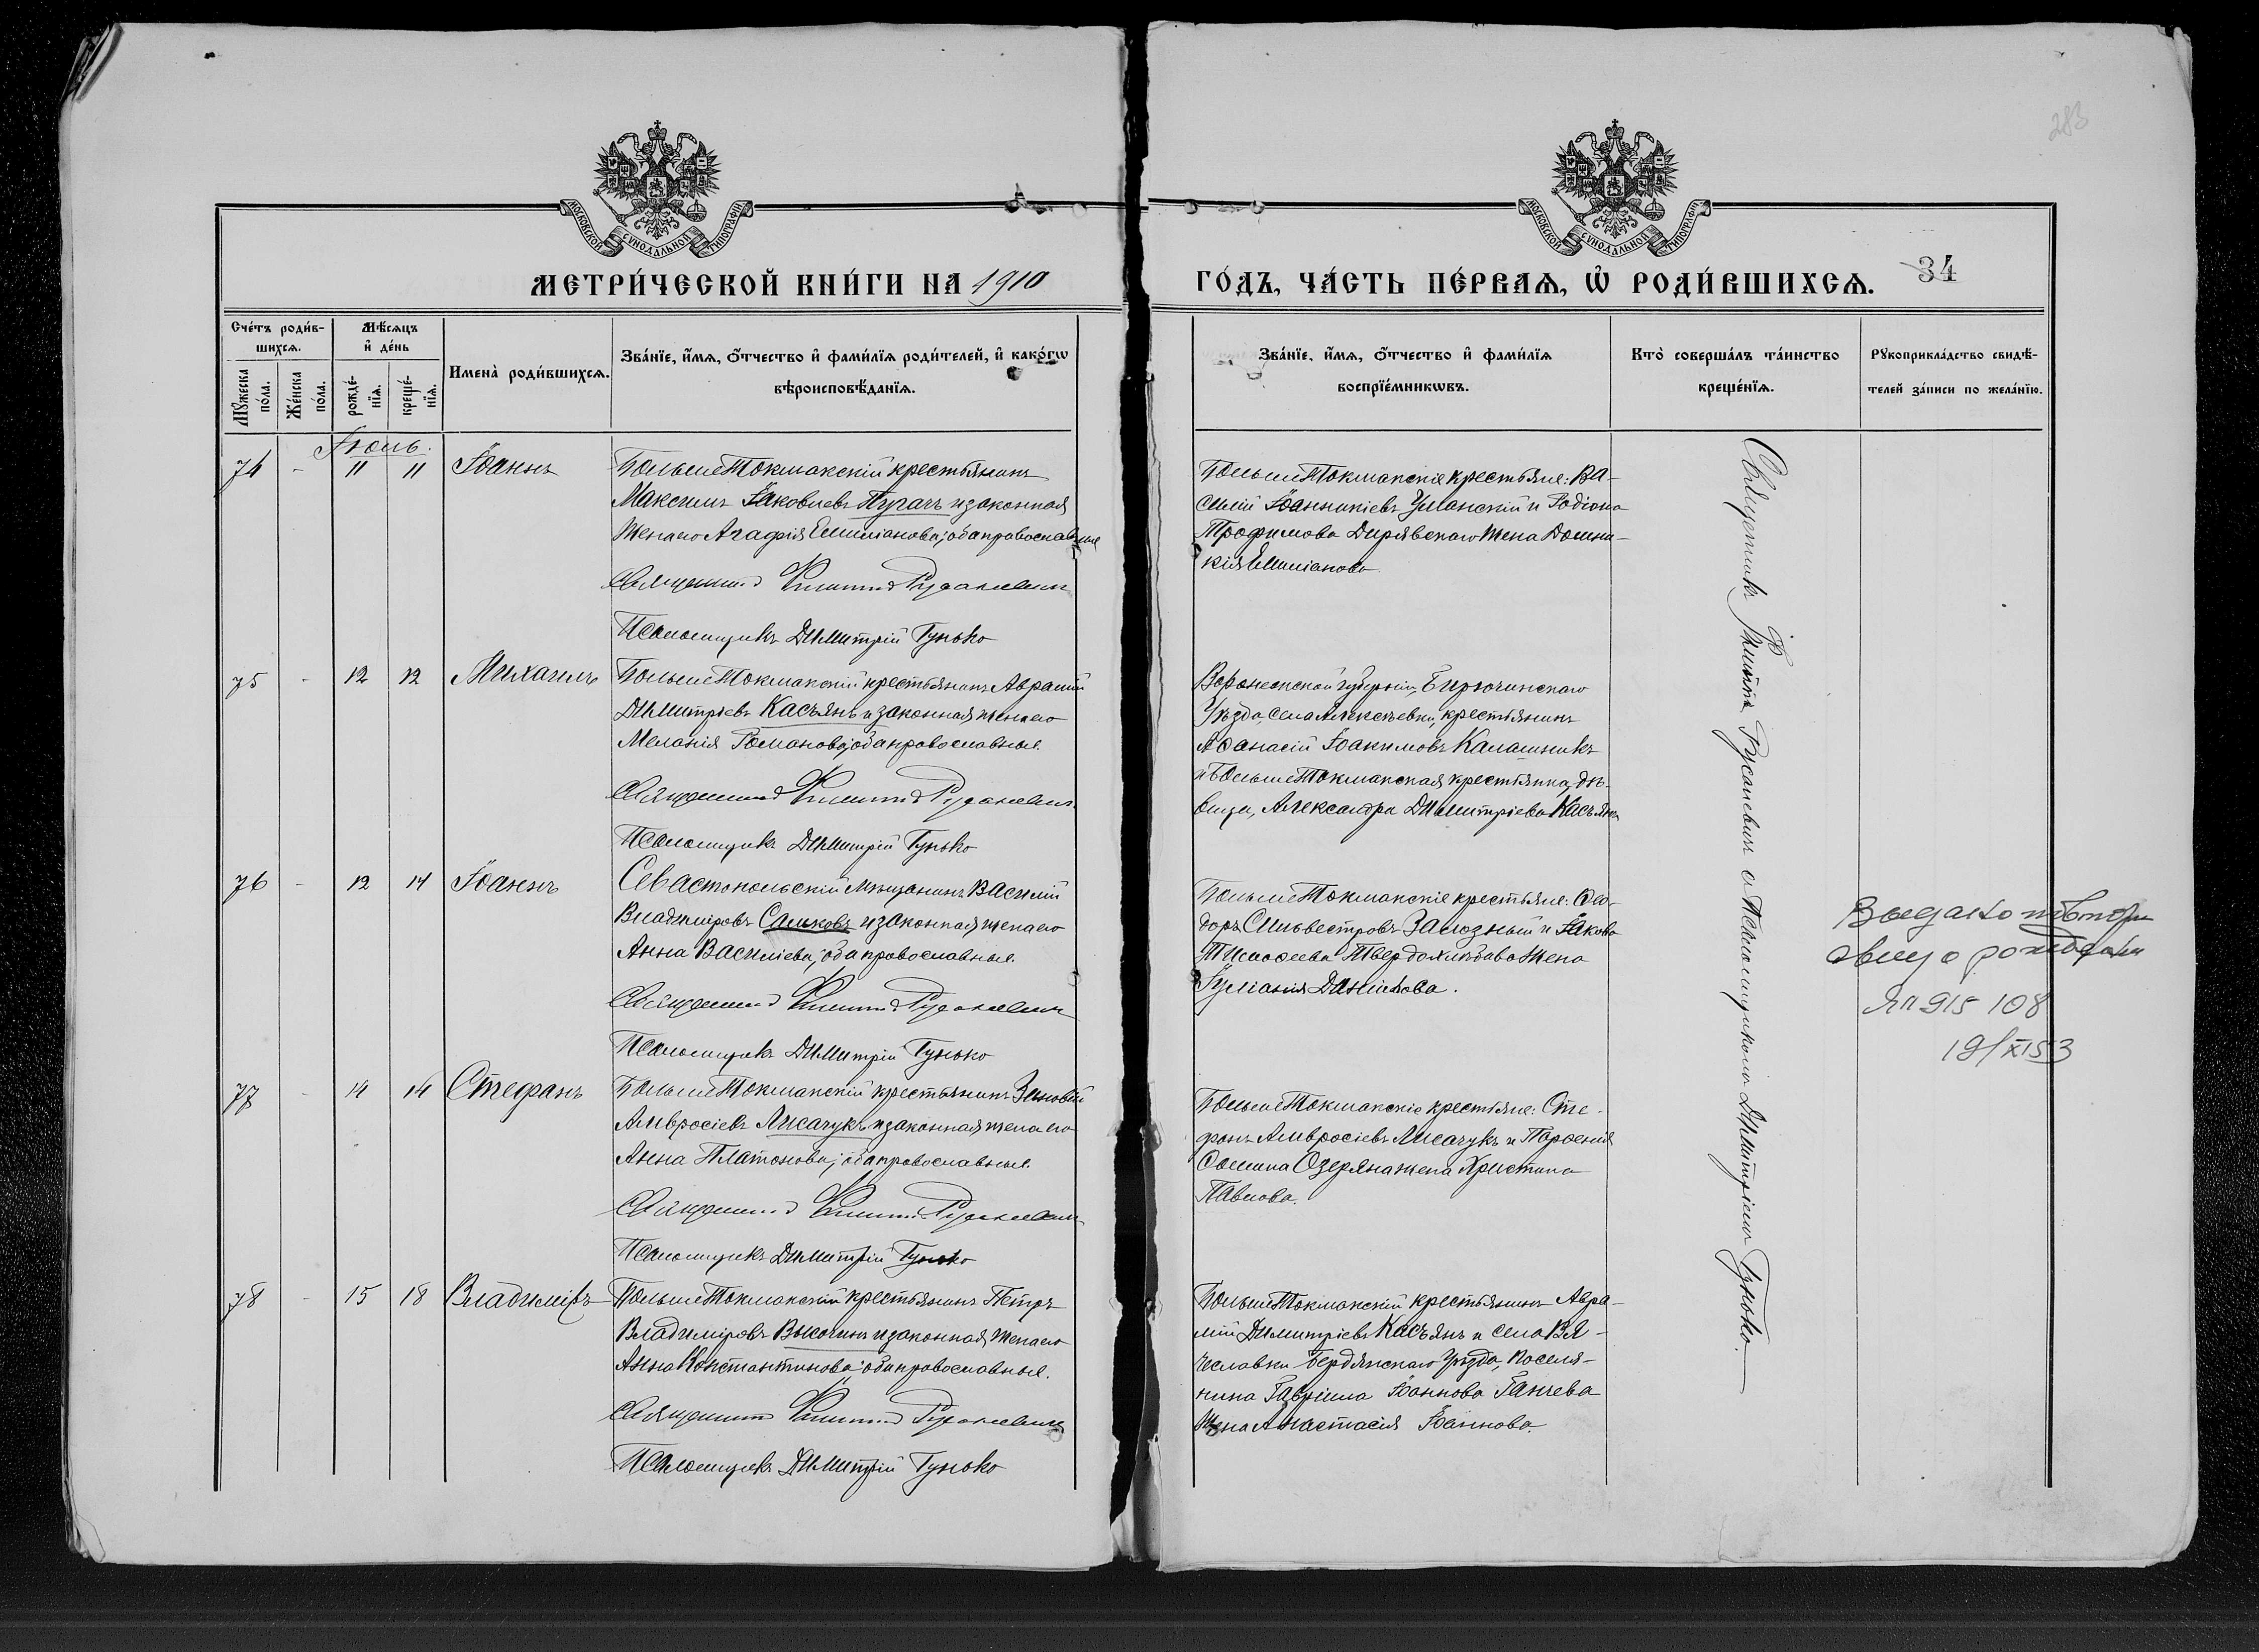 283
МОСКОВСКОЙ СѴНОДАЛЬНОЙ ТИПОГРАФІИ
МОСКОВСКОЙ СѴНОДАЛЬНОЙ ТИПОГРАФІИ
МЕТРИ́ЧЕСКОЙ КНИ́ГИ НА 1910
ГО́ДЪ, ЧА́СТЬ ПЕ́РВАѦ, Ѡ҆ РОДИ́ВШИХСѦ.
34
Сче́тъ роди́в-
шихсѧ.
Мꙋ́жеска по́ла.
Же́нска по́ла.
Мѣ́сѧцъ
и҆ де́нь
рожде́-
нїѧ.
креще́-
нїѧ.
Имена̀ роди́вшихсѧ.
Зва́нїе, и҆́мѧ, ѻ҆́тчество и҆ фами́лїѧ роди́телей, и҆ како́гѡ
вѣроисповѣ́данїѧ.
Зва́нїе, и҆́мѧ, ѻ҆́тчество и҆ фами́лїѧ
воспрїе́мникѡвъ.
Кто̀ соверша́лъ та́инство
креще́нїѧ.
Рꙋкоприкла́дство свидѣ́-
телей за́писи по жела́нїю.
Іюль.
74 - 11 11 Іоаннъ
БольшеТокмакскій крестьянинъ
Максимъ Іаковлевъ Пугачъ и законная
жена его Агафія Емиліанова; оба православные
Священникъ Филиппъ Русаневичъ
Псаломщикъ Димитрій Гунько
БольшеТокмакскіе крестьяне: Ва-
силій Іоанникіевъ Уманскій и Родіона
Трофимова Дирявскаго жена Домни-
кія Емиліанова
75 - 12 12 Михаилъ
БольшеТокмакскій крестьянинъ Аврамій
Димитріевъ Касъянъ и законная жена его
Меланія Романова; оба православные.
Священникъ Филиппъ Русаневичъ
Псаломщикъ Димитрій Гунько
Воронежской губерніи, Бирючинскаго
уѣзда, села Алексѣевки, крестьянинъ
Аѳанасій Іоакимовъ Калашникъ
и БольшеТокмакская крестьянка, дѣ-
вица, Александра Димитріева Касъянъ
76 - 12 14 Іоаннъ
Севастопольскій мѣщанинъ Василій
Владиміровъ Сальковъ и законная жена его
Анна Василіева; оба православные.
Священникъ Филиппъ Русаневичъ
Псаломщикъ Димитрій Гунько
БольшеТокмакскіе крестьяне: Ѳео-
доръ Сильвестровъ Залозный и Іакова
Тимоѳеева Твердохлѣбова жена
Іуліанія Даніилова.
Выдано повторн
свид о рождении
ЯП 915 108
19/XI 53
77 - 14 14 Стефанъ
БольшеТокмакскій крестьянинъ Зиновій
Амвросіевъ Лисачукъ и законная жена его
Анна Платонова; оба православные.
Священникъ Филиппъ Русаневичъ
Псаломщикъ Димитрій Гунько
БольшеТокмакскіе крестьяне: Сте-
фанъ Амвросіевъ Лисачукъ и Парѳенія
Озеряна жена Христина
Павлова.
78 - 15 18 Владиміръ
БольшеТокмакскій крестьянинъ Петръ
Владиміровъ Высочинъ и законная жена его
Анна Константинова; оба православные.
Священникъ Филиппъ Русаневичъ
Псаломщикъ Димитрій Гунько
БольшеТокмакскій крестьянинъ Авра-
мій Димитріевъ Касъянъ и села Вя-
чеславки Бердянскаго уѣзда, поселя-
нина Гавріила Іоаннова Ганчева
жена Анастасія Іоаннова.
Священникъ Филиппъ Русаневичъ с Псаломщикомъ Димитріемъ Гунько.